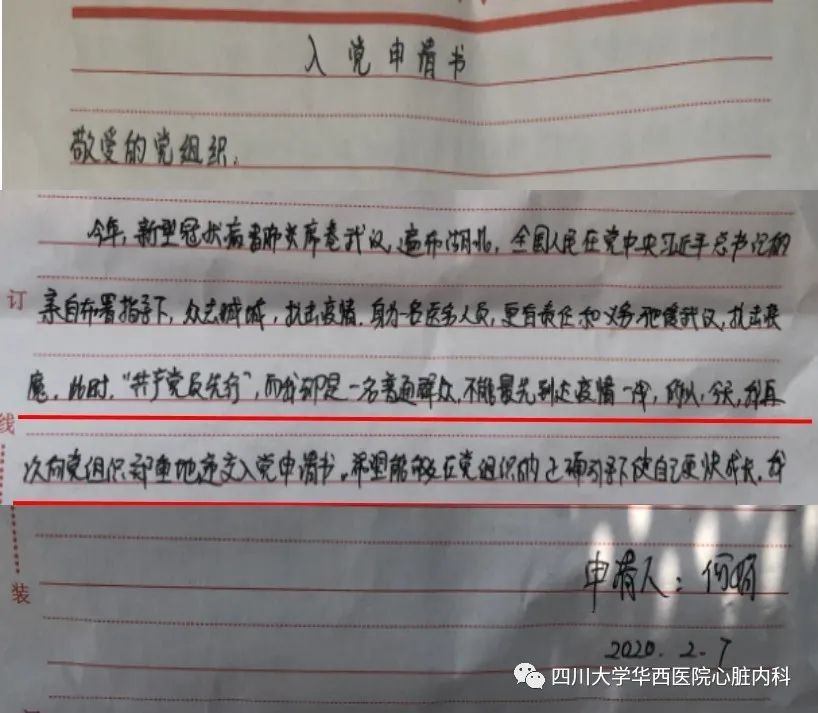 入党申请书
敬爱的党组织:
今年,新型冠状病毒肺炎席卷武汉,遍布湖北,全国人民在党中央习近平总书记的
订
亲自布署指导下,众志成城,抗击疫情.身为一名医务人员,更有责任和义务驰援武汉,抗击病
魔.此时,“共产党员先行”,而我却是一名普通群众,不能最先到达疫情一线,所以,今天,我再
线
次向党组织郑重地递交入党申请书。希望能够在党组织的正确引导下使自己更快成长.我
申请人:何
装
2020.2.7
四川大学华西医院心脏内科